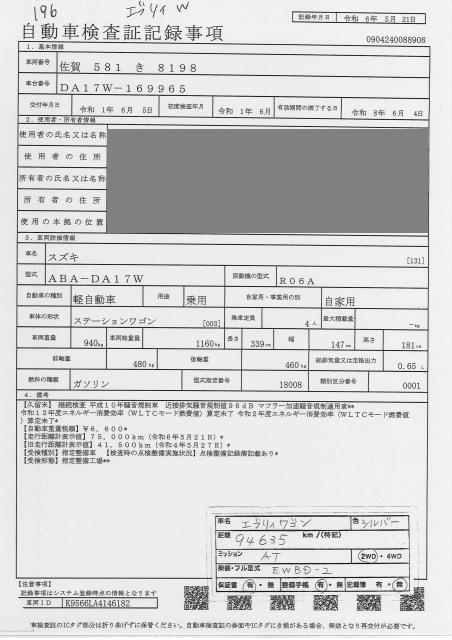 196 エヴリィW
記録年月日 令和 6年 5月 21日
自動車検査証記録事項
0904240088908
1. 基本情報
車両番号 佐賀 581 き 8198
車台番号 DA17W-169965
交付年月日 令和 1年 6月 5日 初度検査年月 令和 1年 6月 有効期間の満了する日 令和 8年 6月 4日
2. 使用者・所有者情報
使用者の氏名又は名称
使用者の住所
所有者の氏名又は名称
所有者の住所
使用の本拠の位置
3. 車両詳細情報
車名 スズキ [131]
型式 ABA-DA17W 原動機の型式 R06A
自動車の種別 軽自動車 用途 乗用 自家用・事業用の別 自家用
車体の形状 ステーションワゴン [003] 乗車定員 4人 最大積載量 -kg
車両重量 940kg 車両総重量 1160kg 長さ 339cm 幅 147cm 高さ 181cm
前軸重 480kg 後軸重 460kg 総排気量又は定格出力 0.65 L
燃料の種類 ガソリン 型式指定番号 18008 類別区分番号 0001
4. 備考
【久留米】 継続検査 平成10年騒音規制車 近接排気騒音規制値96dB マフラー加速騒音規制適用車**
令和12年度エネルギー消費効率（WLTCモード燃費値）算定未了 令和2年度エネルギー消費効率（WLTCモード燃費値
）算定未了*
【自動車重量税額】¥6,600*
【走行距離計表示値】75,000km（令和6年5月21日）*
【旧走行距離計表示値】41,500km（令和4年5月27日）*
【受検種別】指定整備車 【検査時の点検整備実施状況】点検整備記録簿記載あり*
【受検形態】指定整備工場**
車名 エヴリィワゴン 色 シルバー
距離 94635 km／(特記)
ミッション AT 2WD・4WD
架装・フル型式 EWBD-2
保証書 有・無 整備手帳 有・無 記録簿 有・無
【注意事項】
記載事項はシステム登録時点の情報となります
車両ID K9566LA4146182
車検査証のICタグ部分は折り曲げずに保管ください。自動車検査証の券面やICタグに歪みがある場合、無効となり再交付が必要です。